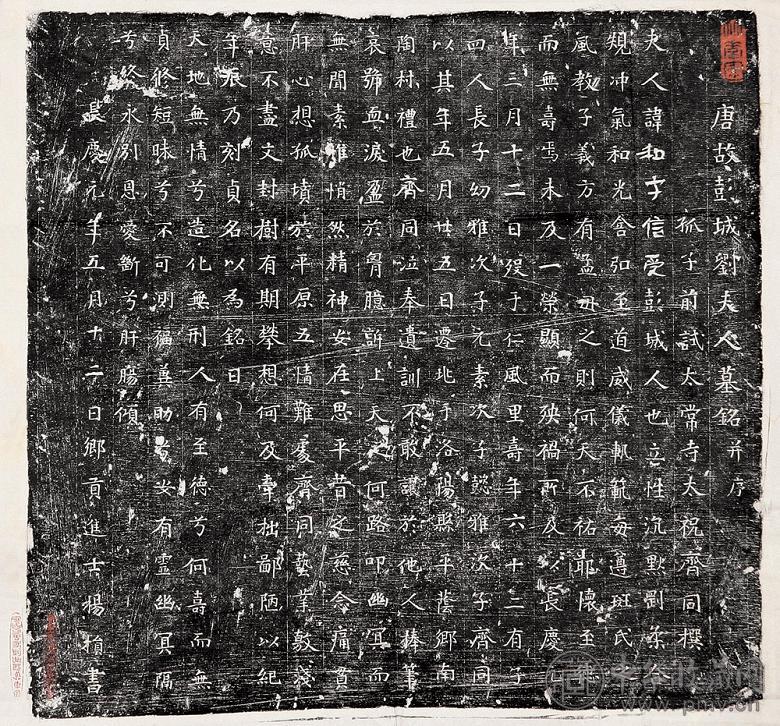 唐故彭城劉夫人墓銘并序
孤子前試太常寺太祝齊同撰
夫人諱和字信受彭城人也立性沉默剛柔合
規冲氣和光含弘至道威儀軌範每遵班氏
風教子義方有孟母之則何天不祐耶懷至
而無壽焉未及一榮顯而殃禍所及以長慶元
年三月十二日歿于仁風里壽年六十二有子
四人長子幼雅次子元素次子懿雅次子齊同
以其年五月廿五日遷兆于洛陽縣平蔭鄉南
陶村禮也齊同泣奉遺訓不敢讓於他人捧筆
哀號血淚盈於胷臆訴上天之何路叩幽冥而
無聞素帷悄然精神安在思平昔之慈念痛貫
肝心想孤墳於平原五情難處齊同藝業敦淺
意不盡文封樹有期攀想何及牽拙鄙陋以紀
年辰乃刻貞名以為銘曰
天地無情兮造化無刑人有至德兮何壽而無
貞脩短昧兮不可測福善助兮女有靈幽冥隔
兮終永別恩愛斷兮肝腸傾
長慶元年五月十二日鄉貢進士楊損書
www.pmv.cn